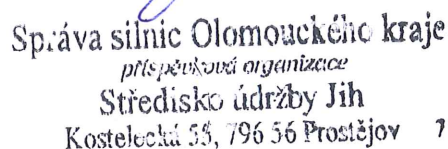 Správa silnic Olomouckého kraje
příspěvková organizace
Středisko údržby Jih
Kostelecká 55, 796 56 Prostějov 7